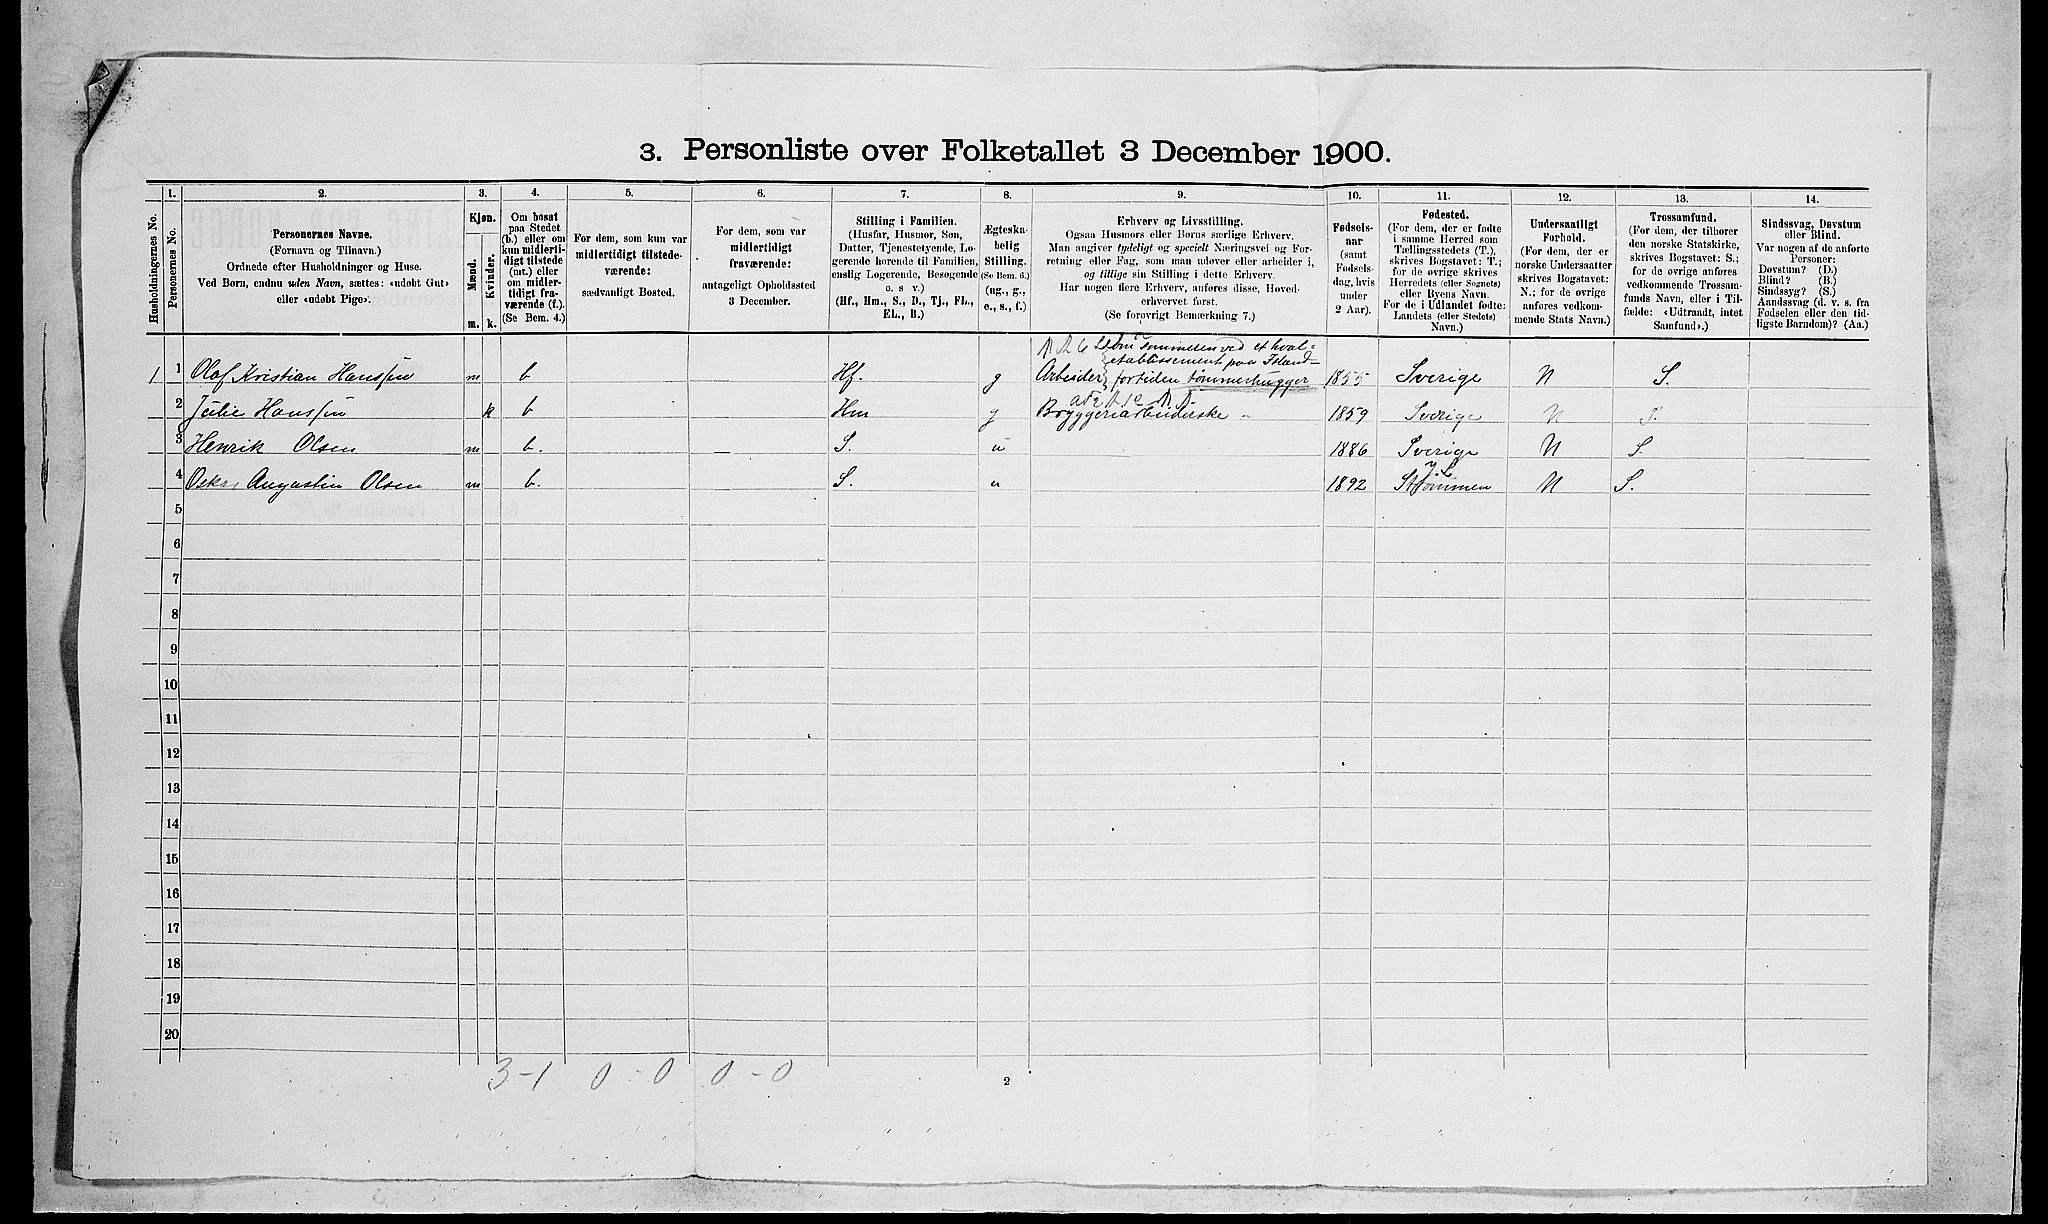 3. Personliste over Folketallet 3 December 1900.
1. 2. 3. 4. 5. 6. 7. 8. 9. 10. 11. 12. 13. 14.
Husholdningernes No.
Personernes No.
Personernes Navne.
(Fornavn og Tilnavn.)
Ordnede efter Husholdninger og Huse.
Ved Børn, endnu uden Navn, sættes: «udøbt Gut»
eller «udøbt Pige».
Kjøn.
Mænd.
Kvinder.
m. k.
Om bosat
paa Stedet
(b.) eller om
kun midlerti-
digt tilstede
(mt.) eller
om midler-
tidigt fra-
værende (f.).
(Se Bem. 4.)
For dem, som kun var
midlertidigt tilstede-
værende:
sædvanligt Bosted.
For dem, som var
midlertidigt
fraværende:
antageligt Opholdssted
3 December.
Stilling i Familien.
(Husfar, Husmor, Søn,
Datter, Tjenestetyende, Lo-
gerende hørende til Familien,
enslig Logerende, Besøgende
o. s v.)
(Hf., Hm., S., D., Tj., FL.,
EL., B.)
Ægteska-
belig
Stilling.
(Se Bem. 6.)
(ug., g.,
e., s., f.)
Erhverv og Livsstilling.
Ogsaa Husmors eller Børns særlige Erhverv.
Man angiver tydeligt og specielt Næringsvei og For-
retning eller Fag, som man udøver eller arbeider i,
og tillige sin Stilling i dette Erhverv.
Har nogen flere Erhverv, anføres disse, Hoved-
erhvervet først.
(Se forøvrigt Bemærkning 7.)
Fødsels-
aar
(samt
Fødsels-
dag, hvis
under
2 Aar).
Fødested.
(For dem, der er fødte
i samme Herred som
Tællingsstedets (T.),
skrives Bogstavet: T.;
for de øvrige skrives
Herredets (eller Sognets)
eller Byens Navn.
For de i Udlandet fødte:
Landets (eller Stedets)
Navn.)
Undersaatligt
Forhold.
(For dem, der er
norske Undersaatter
skrives Bogstavet:
N.; for de øvrige
anføres vedkom-
mende Stats Navn.)
Trossamfund.
(For dem, der tilhører
den norske Statskirke,
skrives Bogstavet: S.;
for de øvrige anføres
vedkommende Trossam-
funds Navn, eller i Til-
fælde: «Udtraadt, intet
Samfund».)
Sindssvag, Døvstum
eller Blind.
Var nogen af de anførte
Personer:
Døvstum? (D.)
Blind? (B.)
Sindssyg? (S.)
Aandssvag (d. v. s. fra
Fødselen eller den tid-
ligste Barndom)? (Aa.)
om sommeren ved et hval-
etablissement paa Island
1 1 Olaf Kristian Hanssen m b Hf. g Arbeider fortiden tømmerhugger 1855 Sverige N S.
2 Julie Hanssen k b Hm g Bryggeriarbeiderske 1859 Sverige N S.
3 Henrik Olsen m b. S. u 1886 Sverige N S.
4 Oskar Augustin Olsen m b. S. u 1892 Strømmen N S.
5
6
7
8
9
10
11
12
13
14
15
16
17
18
19
20
3-1 0-0 0-0
2